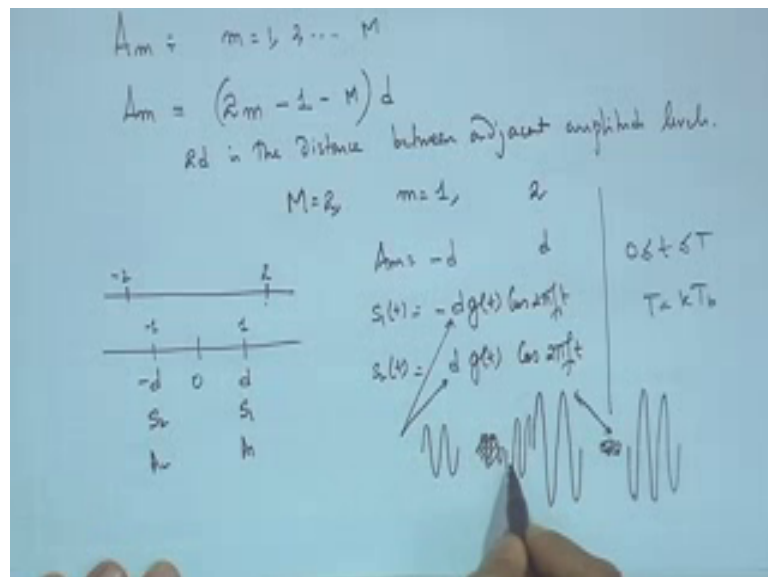 Am : m = 1, 2 ... M
Am = (2m - 1 - M) d
2d is the distance between adjacent amplitude levels.
M=2, m=1, 2
Am = -d d 0 ≤ t ≤ T
s₁(t) = -d g(t) Cos 2πfct T = kTb
s₂(t) = d g(t) Cos 2πfct
-2 2
-1 1
-d 0 d
S₂ S₁